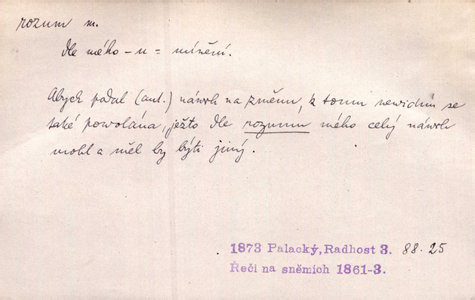 rozum m.
dle mého – u = mínění.
Abych podal (aut.) návrh na změnu, k tomu newidím se
také powolána, ježto dle rozumu mého celý návrh
mohl a měl by býti jiný.
1873 Palacký, Radhost 3. 88. 25
Řeči na sněmích 1861-3.